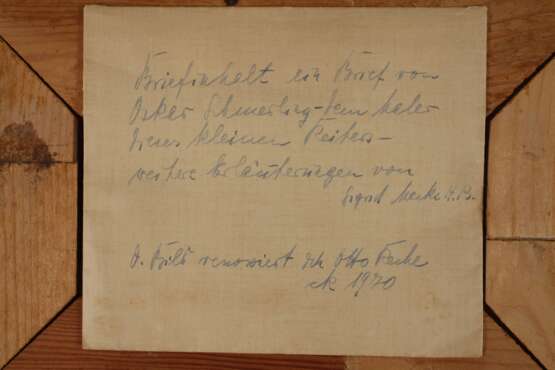 Briefinhalt ein Brief von
Oskar Schmerling - dem Maler
dieses kleinen Reiters -
weitere Erläuterungen von
Sigrid
d. Bild renoviert dch Otto
1970